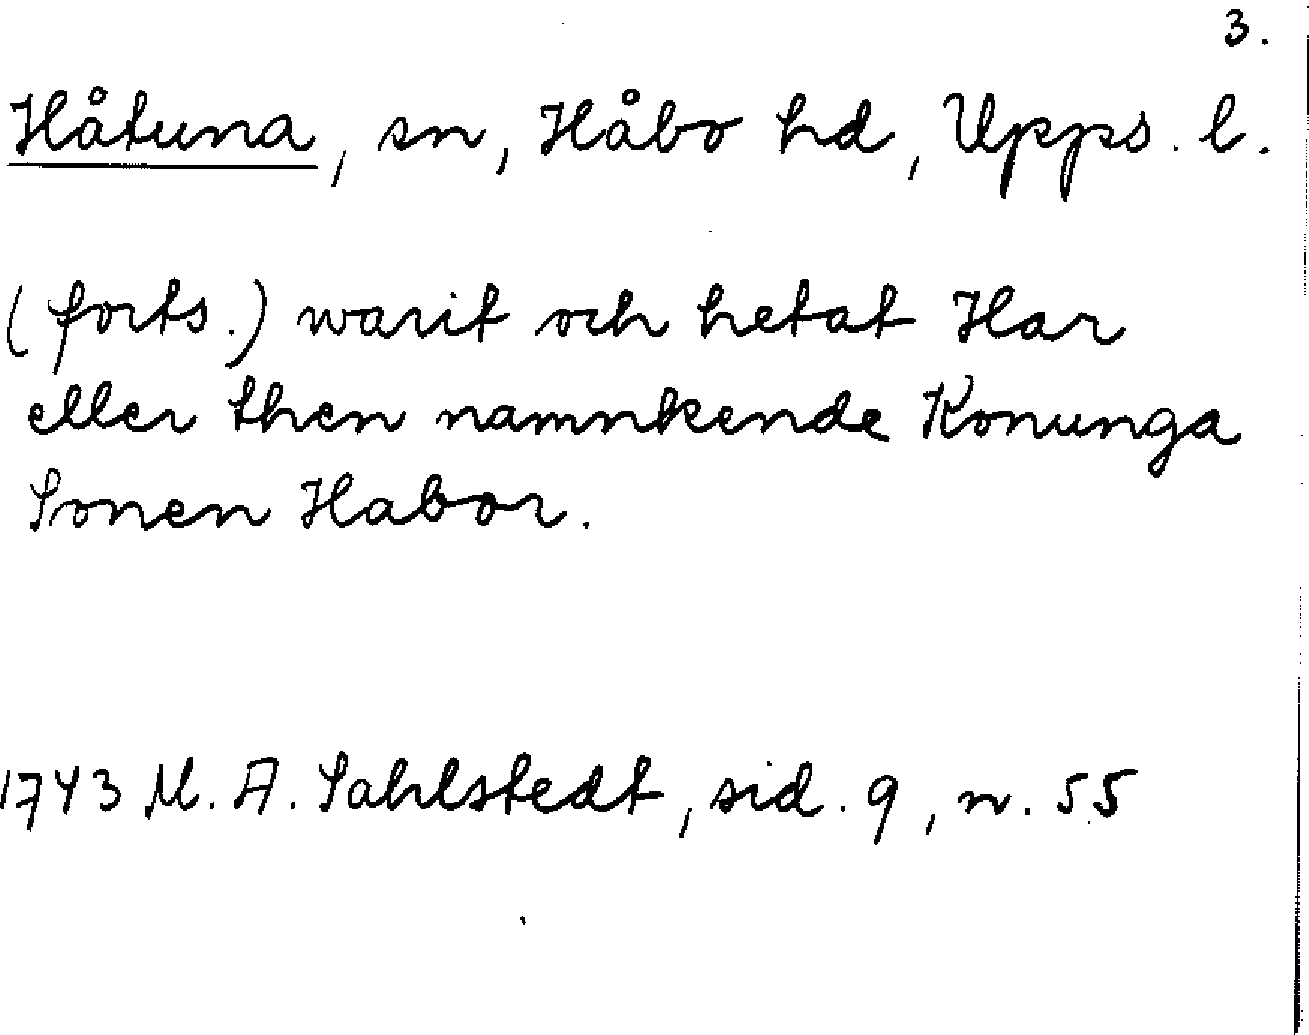 3.
Håtuna, sn, Håbo hd, Upps. l.
(forts.) warit och hetat Har
eller then namnkende Konunga
Sonen Habor.
1743 M. A. Sahlstedt, sid. 9, n. 55